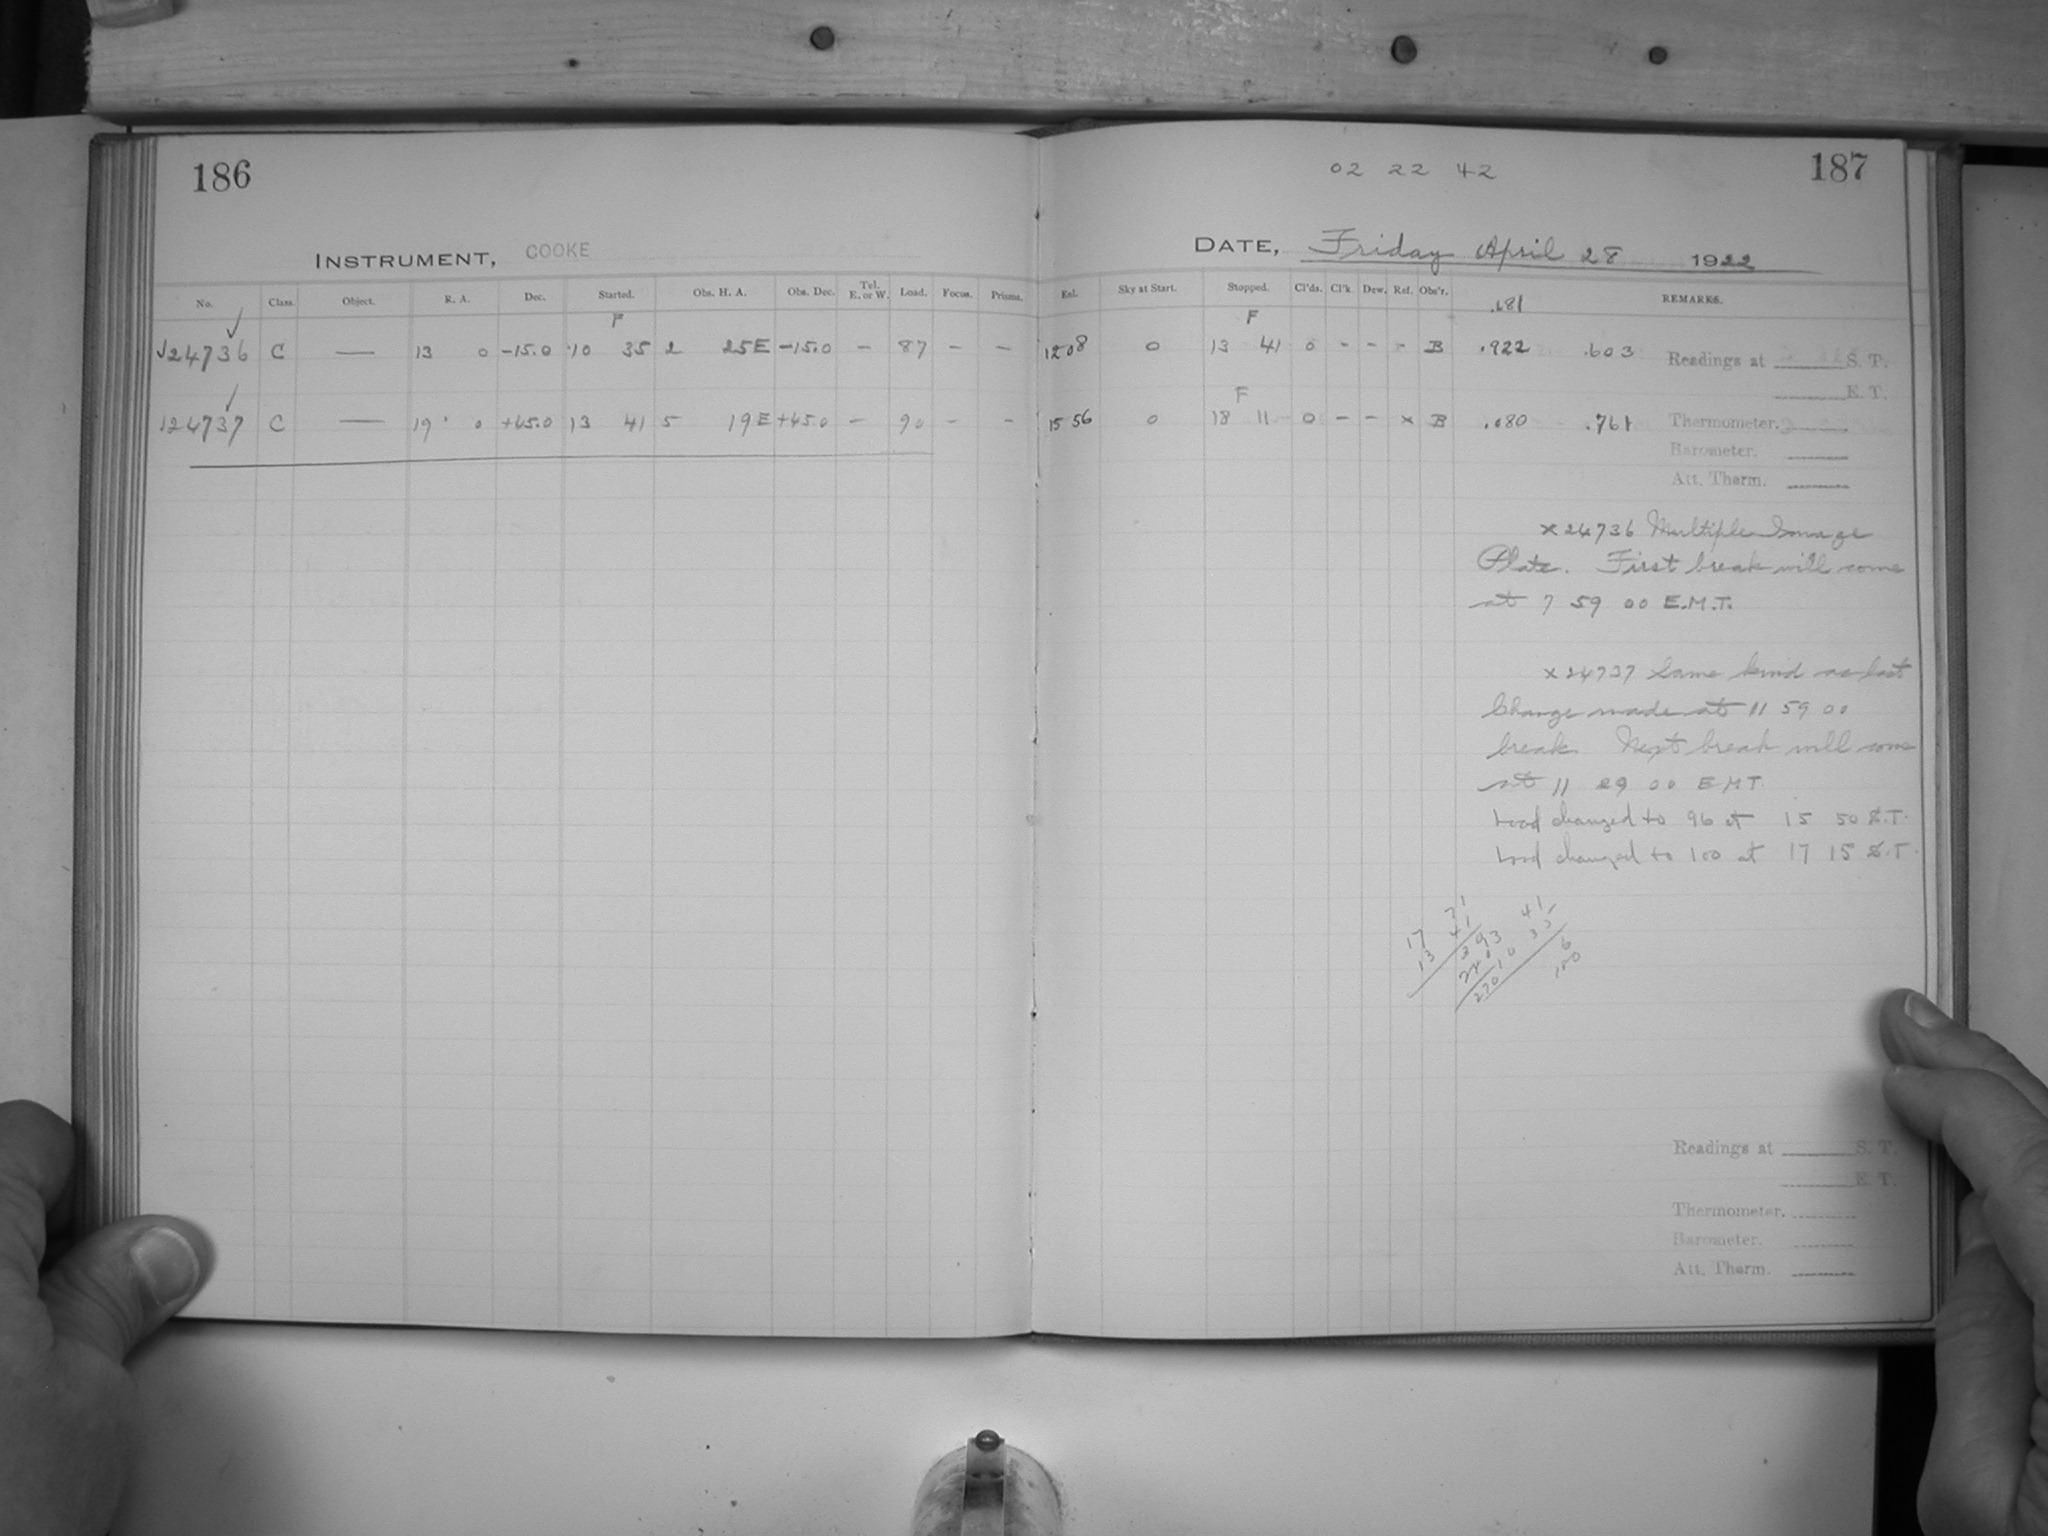 186
INSTRUMENT, COOKE
No. Class. Object. R. A. Dec. Started. Obs. H. A. Obs. Dec. Tel. E. or W. Load. Focus. Prisms.
F
24736 C — 13 0 -15.0 10 35 2 25E -15.0 - 87 - -
24737 C — 19 0 +45.0 13 41 5 19E +45.0 - 90 - -
02 22 42 187
DATE, Friday April 28 1922
Enl. Sky at Start. Stopped. Cl'ds. Cl'k. Dew. Ref. Obs'r. REMARKS.
.681
F
1208 0 13 41 0 - - - B .922 .603 Readings at S. T.
E. T.
F
15 56 0 18 11 0 - - x B .080 .761 Thermometer.
Barometer.
Att. Therm.
x 24736 Multiple Image
Plate. First break will come
at 7 59 00 E.M.T.
x 24737 Same kind as last
Change made at 11 59 00
break. Next break will come
at 11 29 00 EMT.
Load changed to 96 at 15 50 S.T.
Load changed to 100 at 17 15 S.T.
Readings at S. T.
E. T.
Thermometer.
Barometer.
Att. Therm.